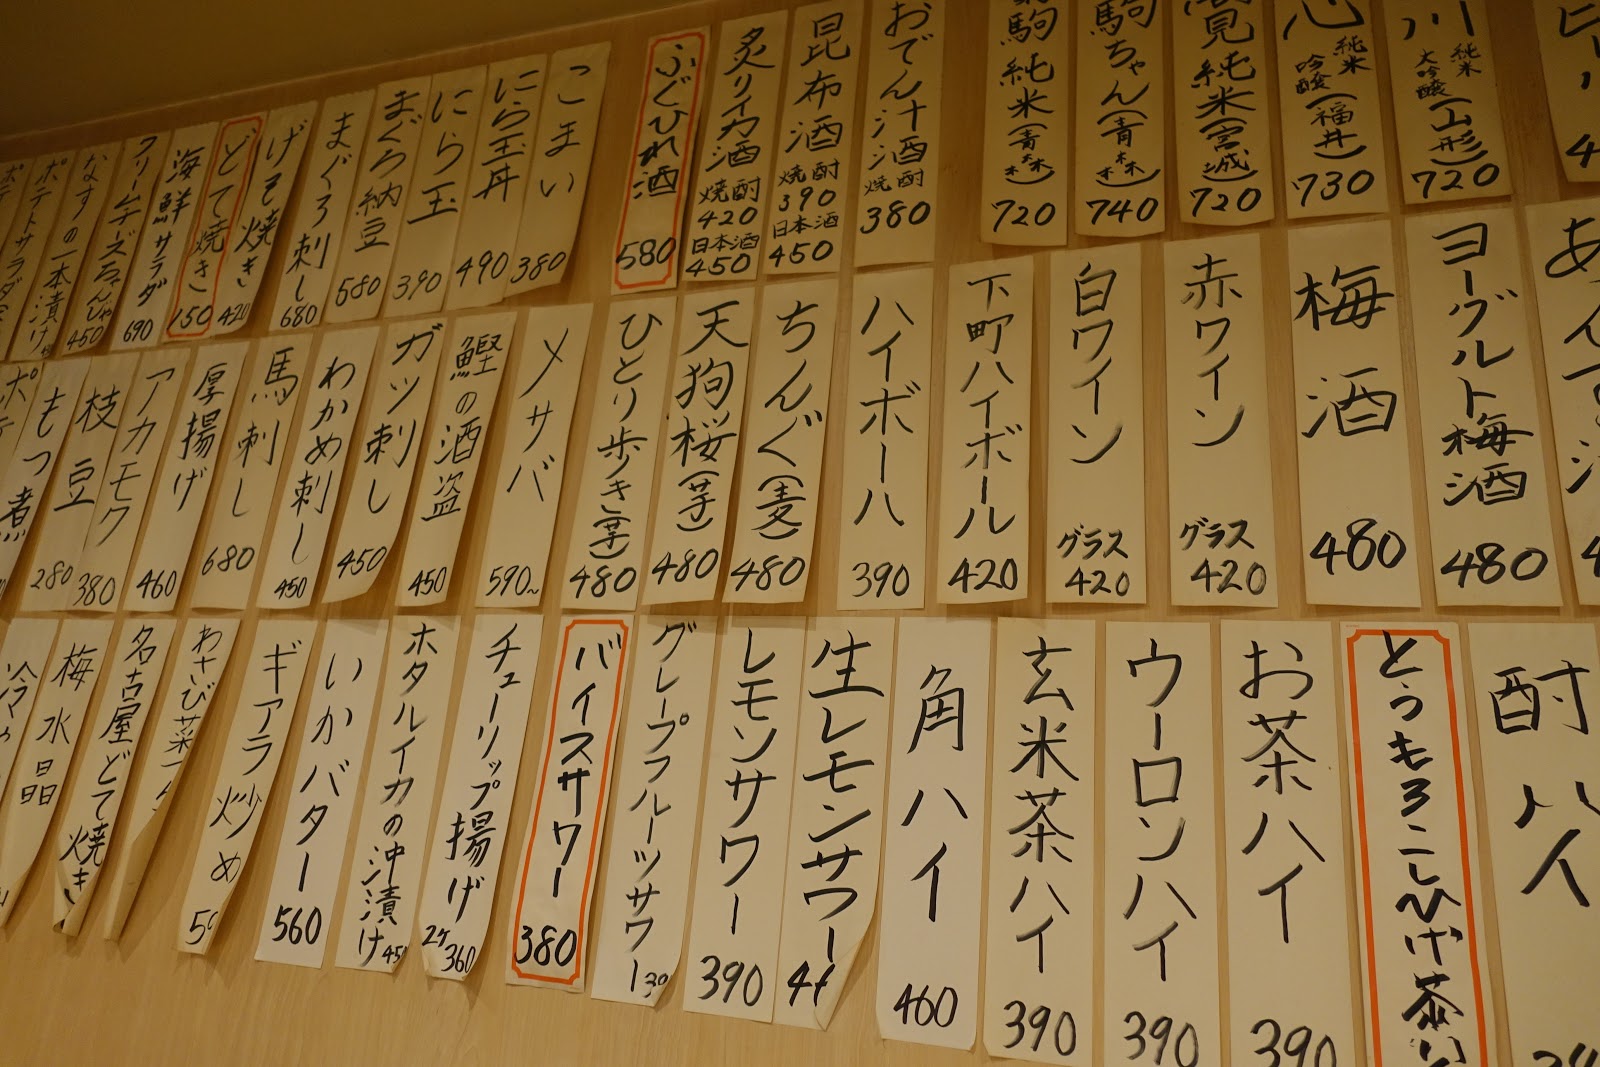 おでん汁酒 焼酎 380
昆布酒 焼酎 390 日本酒 450
炙りイカ酒 焼酎 420 日本酒 450
ふぐひれ酒 580
こまい 380
にら玉丼 490
にら玉 390
まぐろ納豆 580
まぐろ刺し 680
げそ焼き 420
どて焼き 150
海鮮サラダ 690
クリームチーズちゃんじゃ 450
なすの一本漬け
ポテトサラダ
駒 純米(青森) 720
駒ちゃん(青森) 740
純米(宮城) 720
心 純米吟醸(福井) 730
川 純米大吟醸(山形) 720
ヨーグルト梅酒 480
梅酒 480
赤ワイン グラス 420
白ワイン グラス 420
下町ハイボール 420
ハイボール 390
ちんぐ(麦) 480
天狗桜(芋) 480
ひとり歩き(芋) 480
〆サバ 590~
鰹の酒盗 450
ガツ刺し 450
わかめ刺し 450
馬刺し 680
厚揚げ 460
アカモク 380
枝豆 280
もつ煮
酎ハイ
とうもろこしひげ茶ハイ
お茶ハイ 390
ウーロンハイ 390
玄米茶ハイ 390
角ハイ 460
生レモンサワー
レモンサワー 390
グレープフルーツサワー
バイスサワー 380
チューリップ揚げ 2ケ 360
ホタルイカの沖漬け 450
いかバター 560
ギアラ炒め
わさび菜
名古屋どて焼き
梅水晶